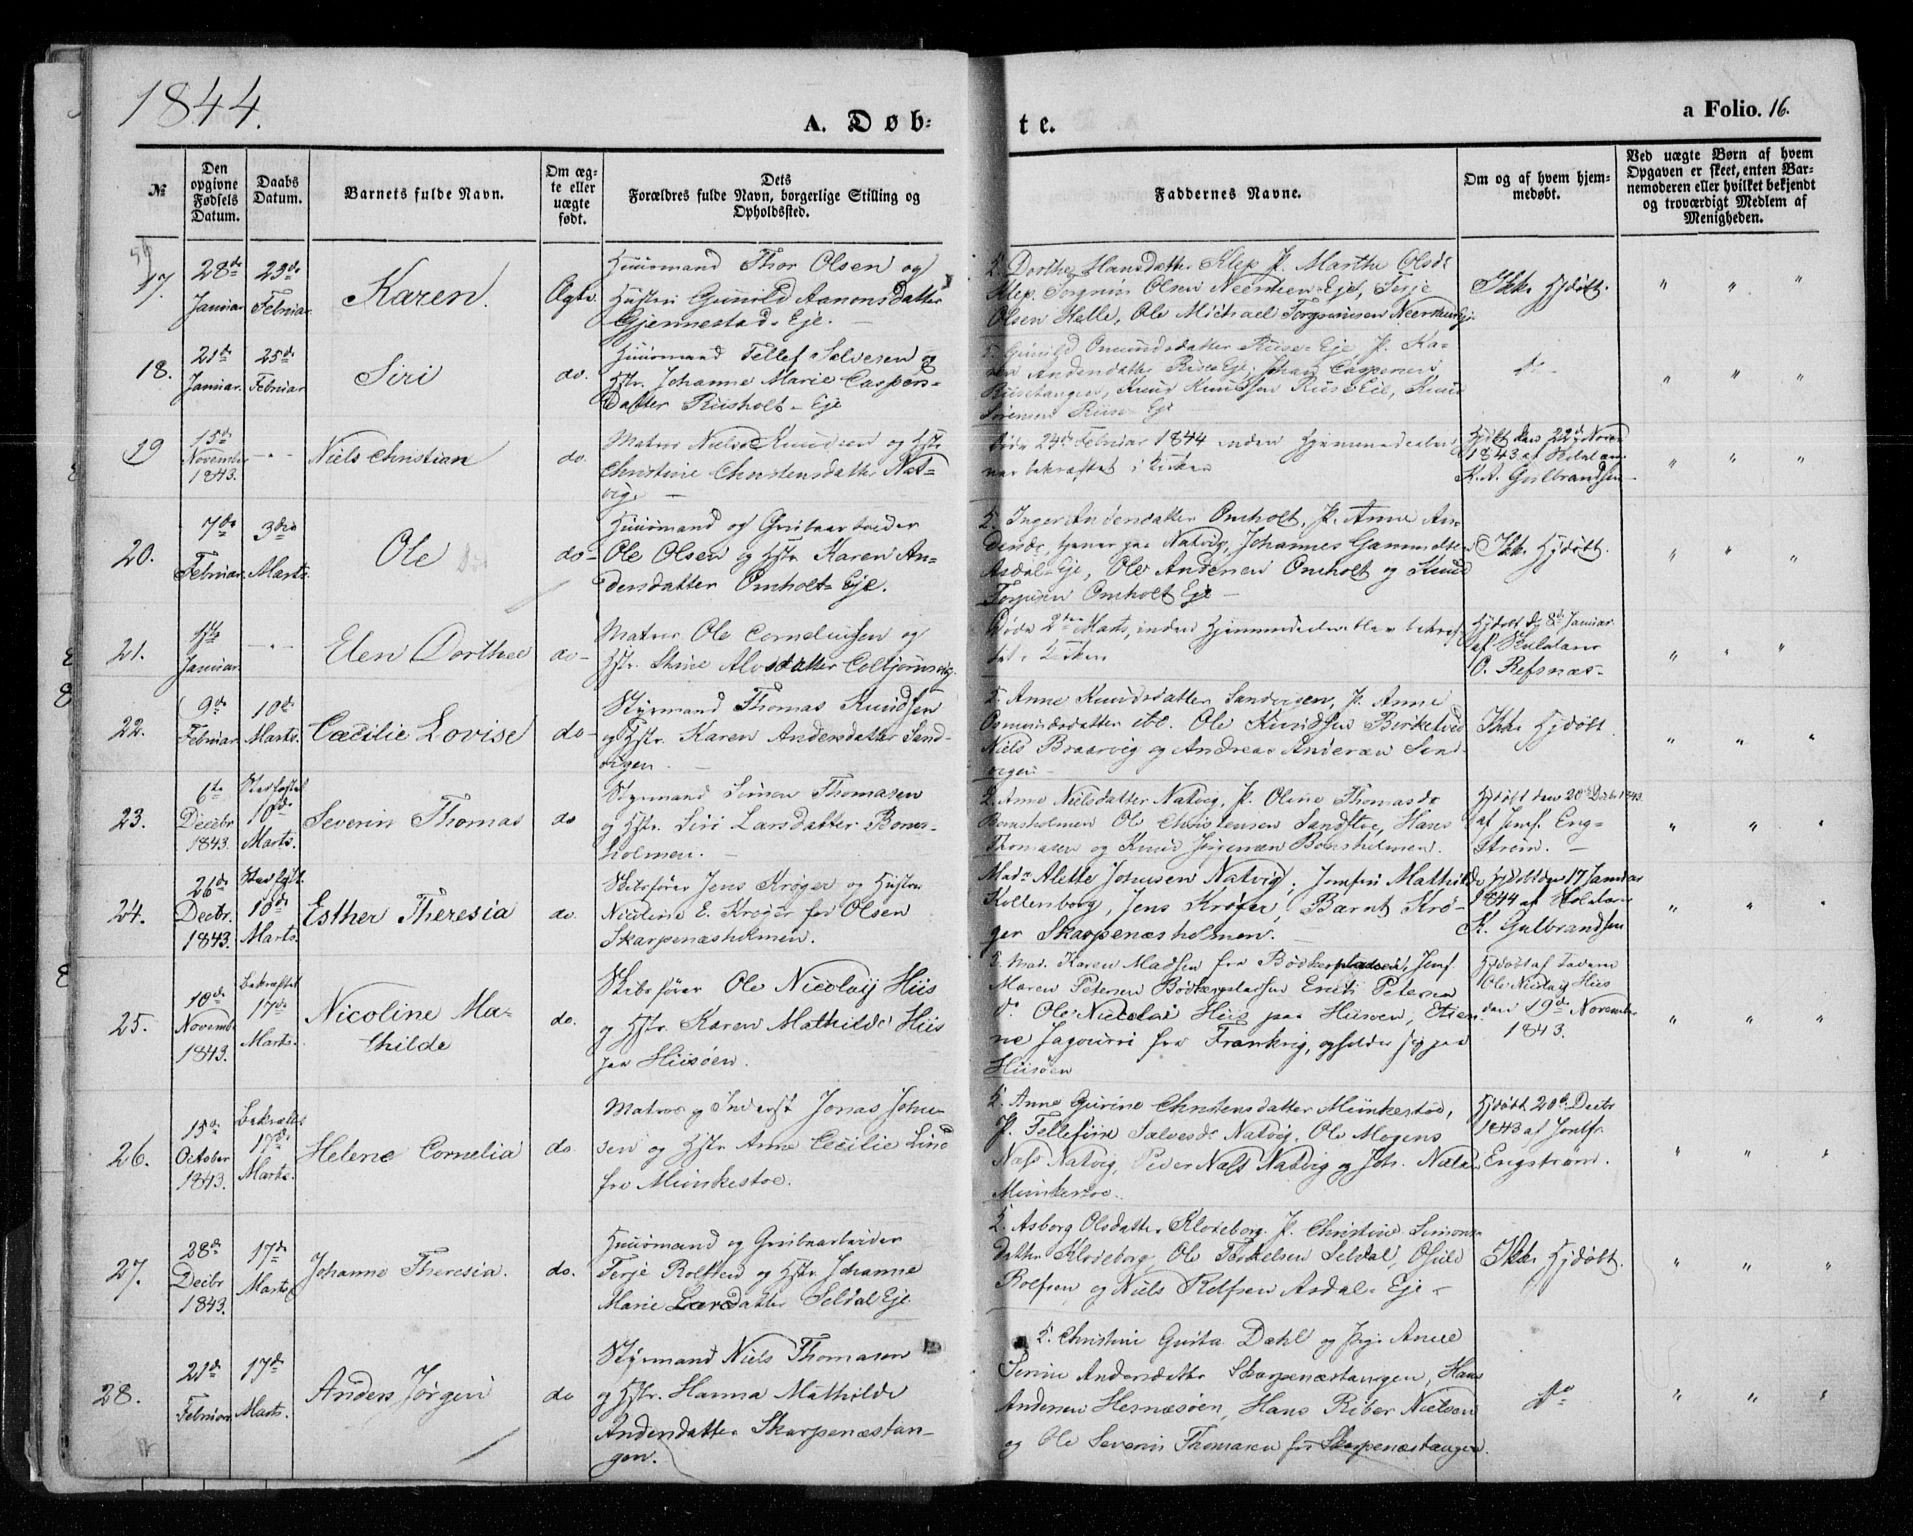 1844.
A. Døb-
te.
a Folio. 16.
№
Den opgivne Fødsels Datum.
Daabs Datum.
Barnets fulde Navn.
Om ægte eller uægte født.
Dets Forældres fulde Navn, borgerlige Stilling og Opholdssted.
Faddernes Navne.
Om og af hvem hjemmedøbt.
Ved uægte Børn af hvem Opgaven er skeet, enten Barnemoderen eller hvilket bekjendt og troværdigt Medlem af Menigheden.
17.
28de
Januar
23de
Februar
Karen.
Ægte.
Huusmand Thor Olsen og
Hustru Gunild Aanonsdatter
Gjennestad-Eje.
Dorthe Hansdatter Klep P. Marthe Olsdr
Klep. Torgrim Olsen Neersteen Eje, Terje
Olsen Helle, Ole Michael Torgrimsen
Ikke Hjdøbt.
18.
21de
Januar
25de
Februar
Siri
do.
Huusmand Tellef Salvesen og
Hstr. Johanne Marie Caspers-
datter Riisholt-Eje
19
15de
November
1843.
Niels Christian
do.
Matros Niels Knudsen og Hstr
Christine Christensdatter Nat-
vig.
Døde 24de Februar 1844 inden Hjemmedaaben
var bekræftet i Kirken
Hjdøbt den 22de Novbr
1843 af
K. A. Gulbrandsen
20.
7de
Februar
3die
Marts.
Ole
do-
Huusmand og Grubearbeider
Ole Olsen og Hstr Karen An-
dersdatter Omholt-Eje.
Inger Andersdatter Omholt, P. Anne An-
dersdr, tjener paa Natvig, Johannes Gammelsen
Asdal-Eje, Ole Andersen Omholt og Knud
Torgusen Omholt Eje
Ikke Hjdøbt.
21.
1ste
Januar
Elen Dorthea
do-
Matros Ole Corneliusen og
Hstr. Stine Alvsdatter Colbjørnsvig.
Døde 2den Marts, inden Hjemmedaaben blev bekræf-
tet i Kirken
Hjdøbt d. 8de Januar
af
O. Refsnæs-
22.
9de
Februar
10de
Marts.
Cæcilie Lovise
do-
Styrmand Thomas Knudsen
og Hstr. Karen Andersdatter Sand-
vigen.
Anne Knudsdatter Sandvigen, P. Anne
Osmundsdatter ibd. Ole Knudsen
Niels Braarvig og Andreas Andersen Sand-
vigen
Ikke Hjdøbt
23.
6te
Decbr
1843.
Stadfæstet
10de
Marts.
Severin Thomas
do
Styrmand Simon Thomasen
og Hstr. Siri Larsdatter Bomes-
holmen.
Anne Nielsdatter Natvig, P. Oline Thomasdr
Bomsholmen Ole Christensen Sandstøe, Hans
Thomasen og Knud Jørgensen Bomsholmen.
Hjdøbt den 20de Decbr 1843
af Jomf. Eng-
strøm.
24.
26de
Decbr.
1843.
10de
Marts.
Esther Theresia
do.
Skibsfører Jens Krøger og Hustru
Nicoline E. Krøger før Olsen
Skarpenæsholmen.
Madm Alette Johnsen Natvig; Jomfru Mathilde
Koltenborg, Jens Krøger, Barnt Krø-
ger Skarpenæsholmen.
Hjdøbt den 17 Januar
1844 af
K. Gulbrandsen
25.
10de
Novembr
1843.
Bekræftet
17de
Marts.
Nicoline Ma-
thilde
do.
Skibsfører Ole Nicolaij Hiis
og Hstr. Karen Mathilde Hiis
paa Hiisøen.
Mad. Karen Madsen fra Bødkerpladsen, Jomf.
Maren Petersen Bødkerpladsen Petersen
Ole Nicolai Hiis paa Hiisøen, Etien-
ne Jagourri fra Frankrig, opholder sig paa
Hiisøen
Hjdøbt af Faderen
Ole Nicolay Hiis
den 19de November
1843.
26.
15de
October
1843.
Bekræftet
17de
Marts.
Helene Cornelia
do
Matros og Inderst Jonas John-
sen og Hstr Anne Cecilie Lind
fra Munkestøe.
Anne Gurine Christensdatter Munkestøe,
P. Tellefine Salvesdr Natvig. Ole Mogens
Næss Natvig, Peder Næss Natvig og Joh. Næss
Munkestøe.
Hjdøbt 20de Decbr
1843 af Jomfr.
Engstrøm.
27.
28de
Decbr
1843.
17de
Marts
Johanne Theresia.
do.
Huusmand og Grubearbeider
Terje Rolfsen og Hstr Johanne
Marie Larsdatter Seldal Eje.
Asborg Olsdatter Kloveborg, P. Christine Simons-
datter Kloveborg, Ole Terkelsen Seldal,
Rolfsen og Niels Rolfsen Asdal-Eje
Ikke Hjdøbt.
28.
21de
Februar
17de
Marts.
Anders Jørgen
do
Styrmand Niels Thomasen
og Hstr. Hanna Mathilde
Andersdatter Skarpenæstan-
gen.
Christine Gurta Dahl og Pig. Anne
Serine Andersdatter Skarpenæstangen, Hans
Andersen Hesnæsøen, Hans Riber Nielsen
og Ole Severin Thomasen fra Skarpenæstangen.
do